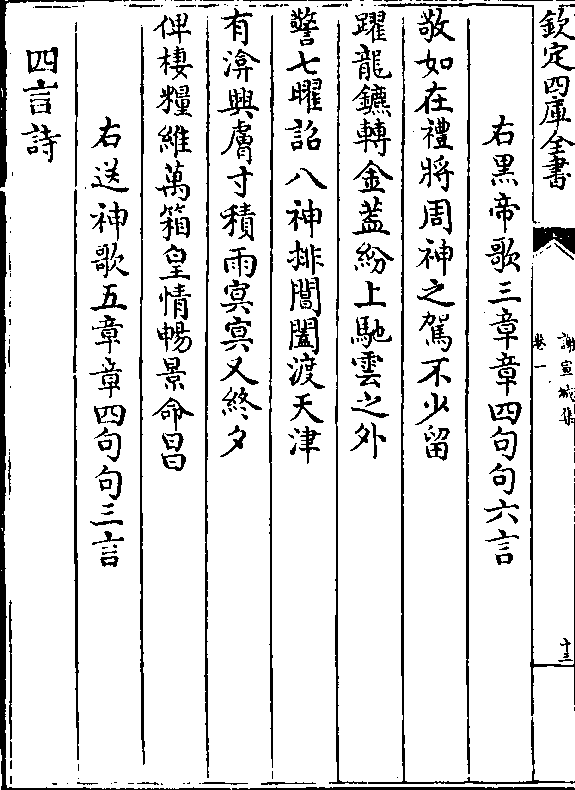 欽定四庫全書
謝宣城集
卷一
十三
右黑帝歌三章章四句句六言
敬如在禮將周神之駕不少留
躍龍鑣轉金蓋紛上馳雲之外
警七曜詔八神排閶闔渡天津
有渰興膚寸積雨㝠㝠又終夕
俾棲糧維萬箱皇情暢景命昌
右送神歌五章章四句句三言
四言詩